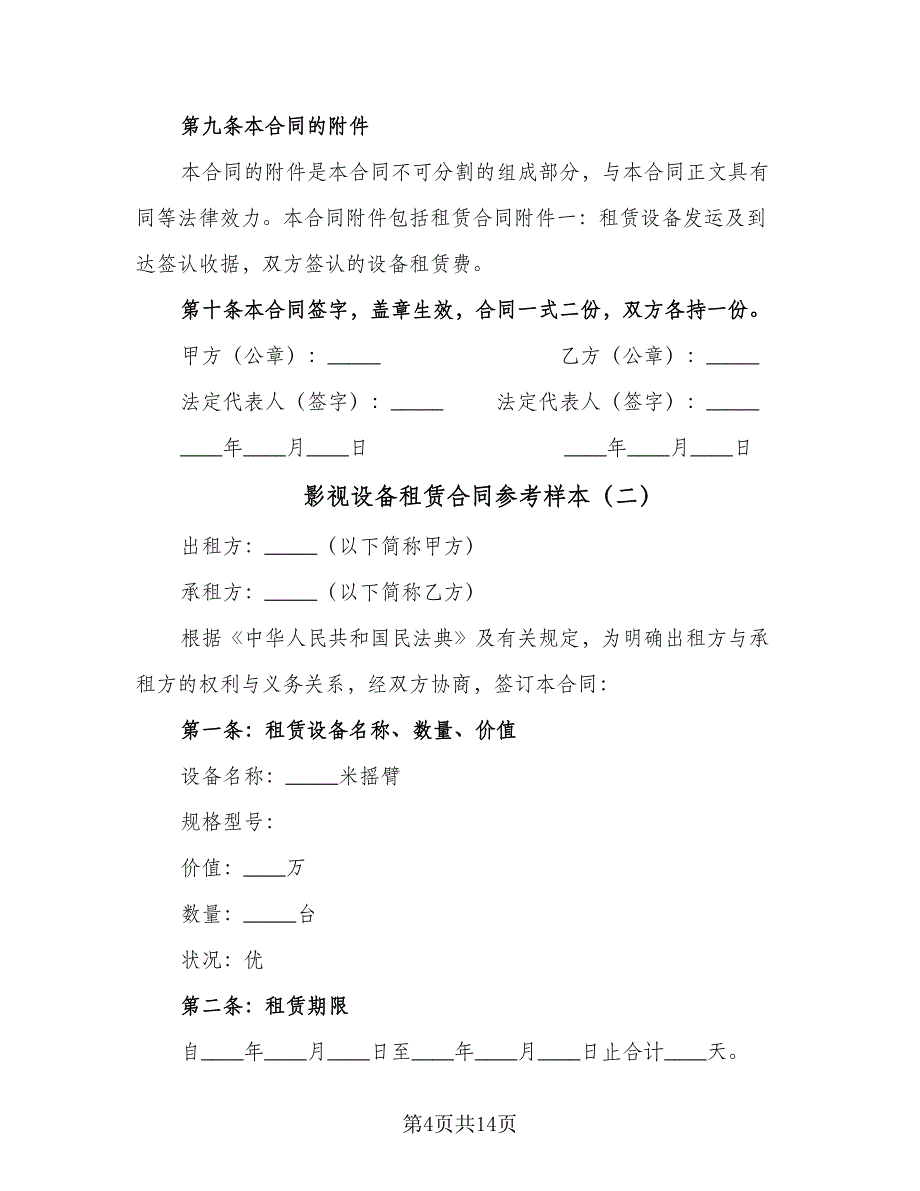 第九条本合同的附件
本合同的附件是本合同不可分割的组成部分，与本合同正文具有
同等法律效力。本合同附件包括租赁合同附件一：租赁设备发运及到
达签认收据，双方签认的设备租赁费。
第十条本合同签字，盖章生效，合同一式二份，双方各持一份。
甲方（公章）：_____ 乙方（公章）：_____
法定代表人（签字）：_____ 法定代表人（签字）：_____
____年____月____日 ____年____月____日
影视设备租赁合同参考样本（二）
出租方：_____（以下简称甲方）
承租方：_____（以下简称乙方）
根据《中华人民共和国民法典》及有关规定，为明确出租方与承
租方的权利与义务关系，经双方协商，签订本合同：
第一条：租赁设备名称、数量、价值
设备名称：_____米摇臂
规格型号：
价值：____万
数量：_____台
状况：优
第二条：租赁期限
自____年____月____日至____年____月____日止合计____天。
第4页共14页